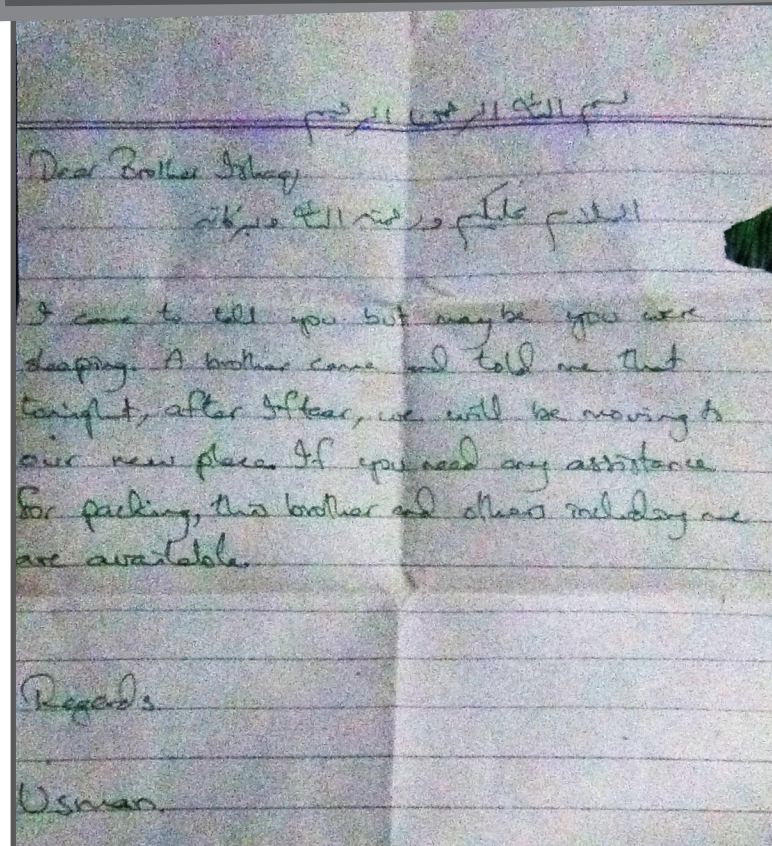 بسم الله الرحمن الرحيم
Dear Brother Ishaq,
السلام عليكم ورحمته الله وبركاته
I came to tell you but maybe you were
sleeping. A brother came and told me that
tonight, after Iftaar, we will be moving to
our new place. If you need any assistance
for packing, this brother and others including me
are available.
Regards
Usman.